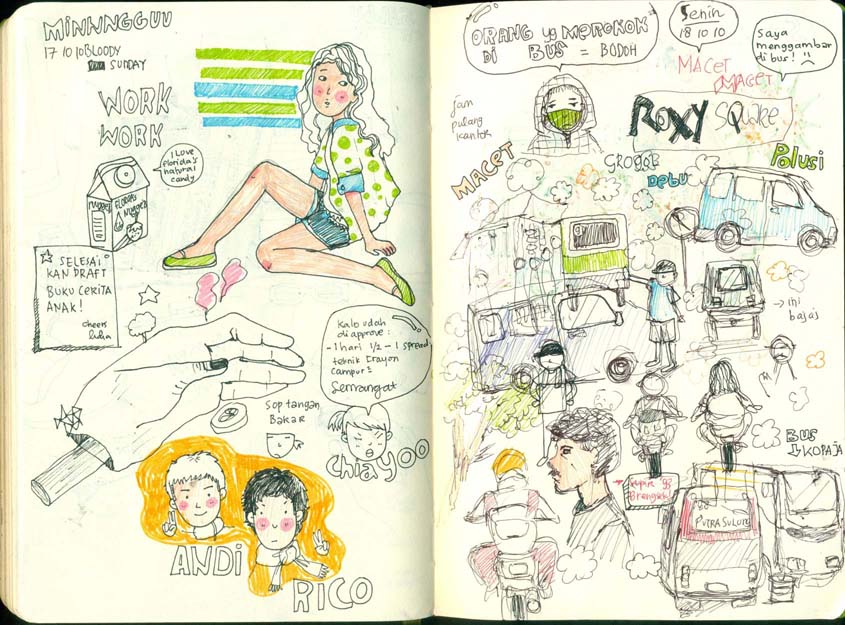 MINNNGGUU
17 10 10 BLOODY
SUNDAY
WORK
WORK
I Love
florida's
natural
candy
SELESAI
KAN DRAFT
BUKU CERITA
ANAK!
cheers
Kalo udah
diapprove:
-1 hari 1/2 - 1 spread
teknik Drayon
Campur2
Semangat
Sop tangan
Bakar
CHIAYOO
ANDI
RICO
ORANG yg MEROKOK
DI BUS = BODOH
Senin
18 10 10
Saya
menggambar
di bus!
MACET
MACET
jam
pulang
kantor
ROXY SQUARE
MACET
Grogol
DEBU
POLUSI
→ ini
bajaj
BUS
KOPAJA
Supir yg
Brengsek
PUTRA SULUNG